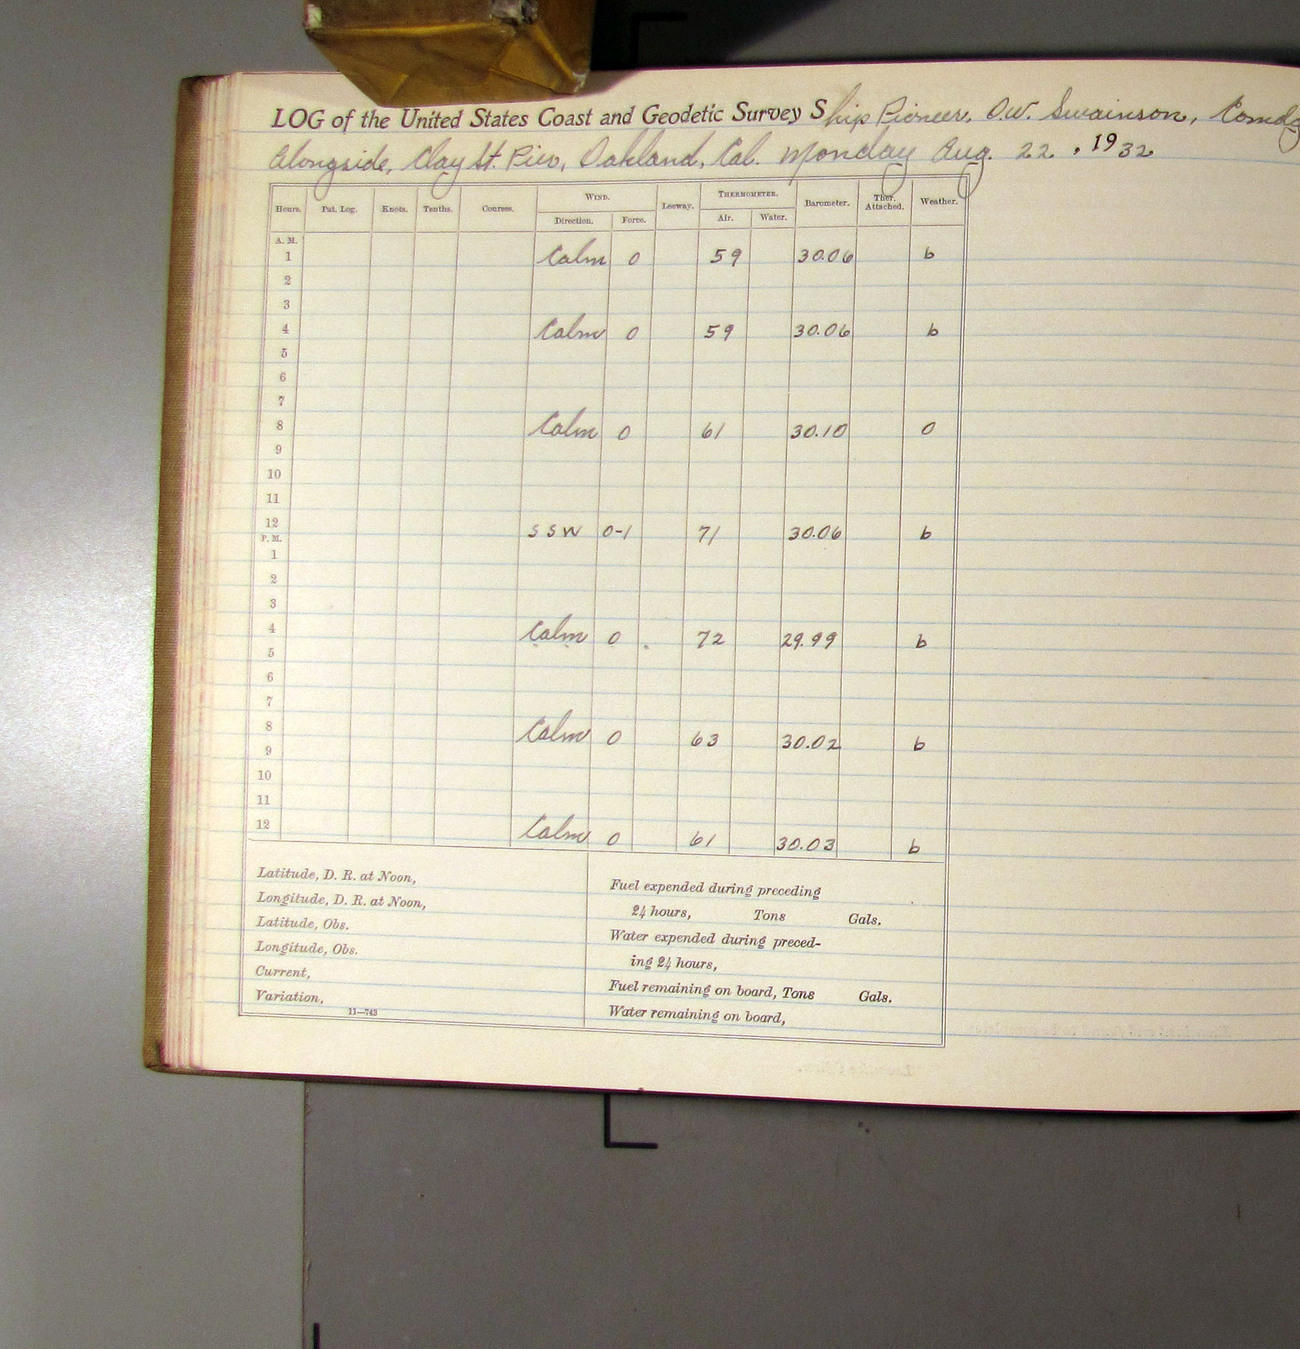 LOG of the United States Coast and Geodetic Survey Ship Pioneer, O.W. Swainson, Comdg
Alongside, Clay St. Pier, Oakland, Cal. Monday Aug. 22, 1932
WIND. THERMOMETER.
Hours. Pat. Log. Knots. Tenths. Courses. Direction. Force. Leeway. Air. Water. Barometer. Ther. Attached. Weather.
A. M.
1 Calm 0 59 30.06 b
2
3
4 Calm 0 59 30.06 b
5
6
7
8 Calm 0 61 30.10 0
9
10
11
12 SSW 0-1 71 30.06 b
P. M.
1
2
3
4 Calm 0 72 29.99 b
5
6
7
8 Calm 0 63 30.02 b
9
10
11
12 Calm 0 61 30.03 b
Latitude, D. R. at Noon,
Longitude, D. R. at Noon,
Latitude, Obs.
Longitude, Obs.
Current,
Variation,
11—743
Fuel expended during preceding
24 hours, Tons Gals.
Water expended during preced-
ing 24 hours,
Fuel remaining on board, Tons Gals.
Water remaining on board,